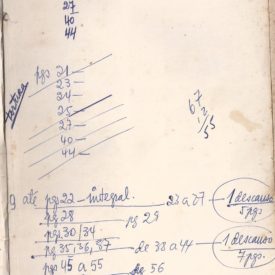 27
40
44
pgs 21 —
23 —
24 —
25 —
27 —
40 —
44 —
67
12
55
9 até pgs 22 — integral. 23 a 37 — 1 descanso 5 pgs.
pg 28 pg 29
pgs 30/34
pgs 35, 36, 37 de 38 a 44 — 1 descanso 7 pgs.
pgs 45 a 55 de 56